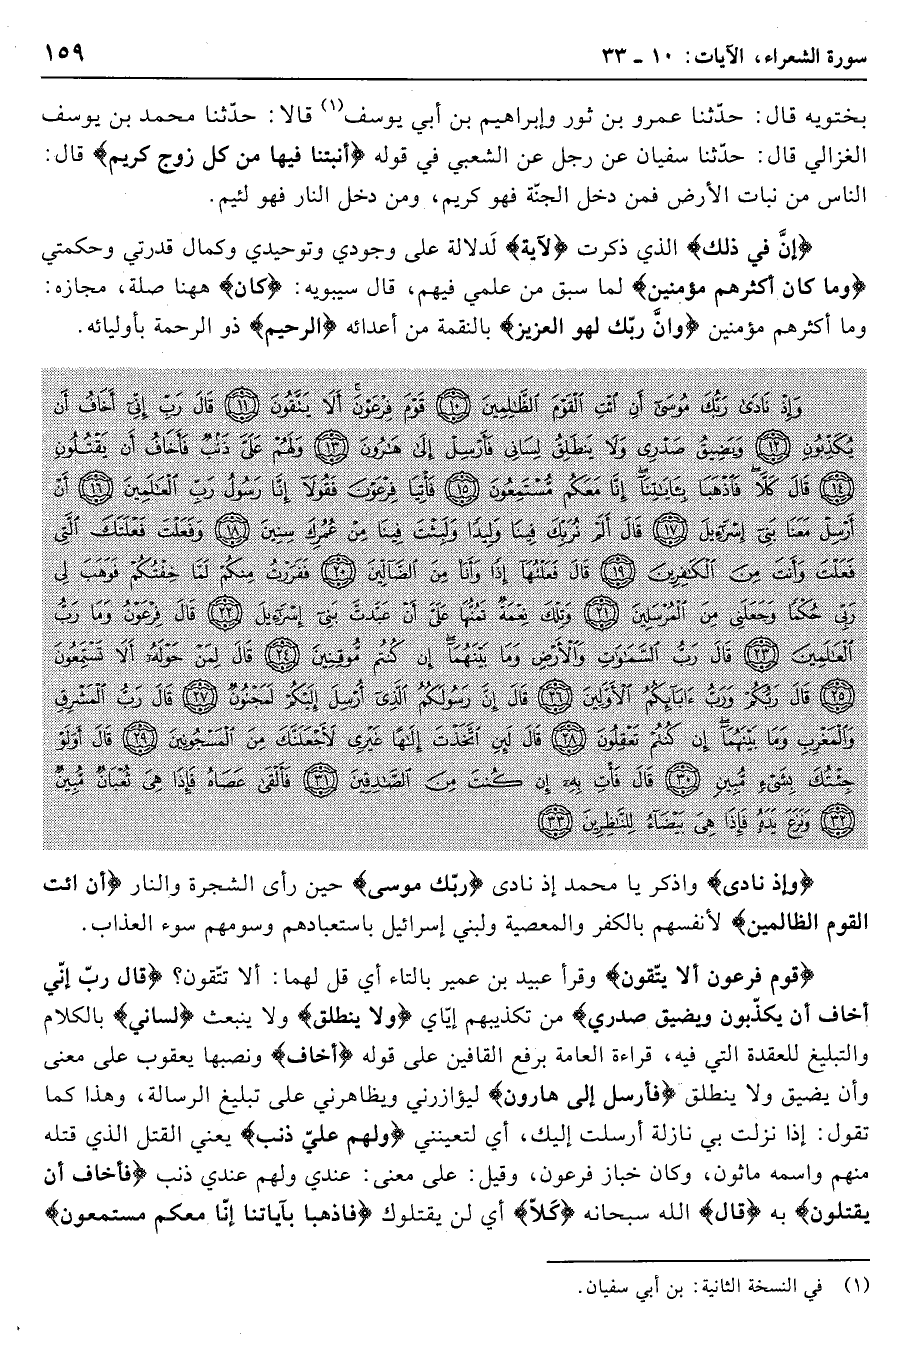 سورة الشعراء، الآيات: ١٠ ـ ٣٣ ١٥٩
بختويه قال: حدّثنا عمرو بن ثور وإبراهيم بن أبي يوسف(١) قالا: حدّثنا محمد بن يوسف
الغزالي قال: حدّثنا سفيان عن رجل عن الشعبي في قوله ﴿أنبتنا فيها من كل زوج كريم﴾ قال:
الناس من نبات الأرض فمن دخل الجنّة فهو كريم، ومن دخل النار فهو لئيم.
﴿إنَّ في ذلك﴾ الذي ذكرت ﴿لآية﴾ لَدلالة على وجودي وتوحيدي وكمال قدرتي وحكمتي
﴿وما كان أكثرهم مؤمنين﴾ لما سبق من علمي فيهم، قال سيبويه: ﴿كان﴾ ههنا صلة، مجازه:
وما أكثرهم مؤمنين ﴿وانَّ ربّك لهو العزيز﴾ بالنقمة من أعدائه ﴿الرحيم﴾ ذو الرحمة بأوليائه.
وَإِذْ نَادَىٰ رَبُّكَ مُوسَىٰٓ أَنِ ٱئْتِ ٱلْقَوْمَ ٱلظَّٰلِمِينَ ﴿١٠﴾ قَوْمَ فِرْعَوْنَ ۚ أَلَا يَتَّقُونَ ﴿١١﴾ قَالَ رَبِّ إِنِّىٓ أَخَافُ أَن
يُكَذِّبُونِ ﴿١٢﴾ وَيَضِيقُ صَدْرِى وَلَا يَنطَلِقُ لِسَانِى فَأَرْسِلْ إِلَىٰ هَٰرُونَ ﴿١٣﴾ وَلَهُمْ عَلَىَّ ذَنۢبٌ فَأَخَافُ أَن يَقْتُلُونِ
﴿١٤﴾ قَالَ كَلَّا ۖ فَٱذْهَبَا بِـَٔايَٰتِنَآ ۖ إِنَّا مَعَكُم مُّسْتَمِعُونَ ﴿١٥﴾ فَأْتِيَا فِرْعَوْنَ فَقُولَآ إِنَّا رَسُولُ رَبِّ ٱلْعَٰلَمِينَ ﴿١٦﴾ أَنْ
أَرْسِلْ مَعَنَا بَنِىٓ إِسْرَٰٓءِيلَ ﴿١٧﴾ قَالَ أَلَمْ نُرَبِّكَ فِينَا وَلِيدًا وَلَبِثْتَ فِينَا مِنْ عُمُرِكَ سِنِينَ ﴿١٨﴾ وَفَعَلْتَ فَعْلَتَكَ ٱلَّتِى
فَعَلْتَ وَأَنتَ مِنَ ٱلْكَٰفِرِينَ ﴿١٩﴾ قَالَ فَعَلْتُهَآ إِذًا وَأَنَا۠ مِنَ ٱلضَّآلِّينَ ﴿٢٠﴾ فَفَرَرْتُ مِنكُمْ لَمَّا خِفْتُكُمْ فَوَهَبَ لِى
رَبِّى حُكْمًا وَجَعَلَنِى مِنَ ٱلْمُرْسَلِينَ ﴿٢١﴾ وَتِلْكَ نِعْمَةٌ تَمُنُّهَا عَلَىَّ أَنْ عَبَّدتَّ بَنِىٓ إِسْرَٰٓءِيلَ ﴿٢٢﴾ قَالَ فِرْعَوْنُ وَمَا رَبُّ
ٱلْعَٰلَمِينَ ﴿٢٣﴾ قَالَ رَبُّ ٱلسَّمَٰوَٰتِ وَٱلْأَرْضِ وَمَا بَيْنَهُمَآ ۖ إِن كُنتُم مُّوقِنِينَ ﴿٢٤﴾ قَالَ لِمَنْ حَوْلَهُۥٓ أَلَا تَسْتَمِعُونَ
﴿٢٥﴾ قَالَ رَبُّكُمْ وَرَبُّ ءَابَآئِكُمُ ٱلْأَوَّلِينَ ﴿٢٦﴾ قَالَ إِنَّ رَسُولَكُمُ ٱلَّذِىٓ أُرْسِلَ إِلَيْكُمْ لَمَجْنُونٌ ﴿٢٧﴾ قَالَ رَبُّ ٱلْمَشْرِقِ
وَٱلْمَغْرِبِ وَمَا بَيْنَهُمَآ ۖ إِن كُنتُمْ تَعْقِلُونَ ﴿٢٨﴾ قَالَ لَئِنِ ٱتَّخَذْتَ إِلَٰهًا غَيْرِى لَأَجْعَلَنَّكَ مِنَ ٱلْمَسْجُونِينَ ﴿٢٩﴾ قَالَ أَوَلَوْ
جِئْتُكَ بِشَىْءٍ مُّبِينٍ ﴿٣٠﴾ قَالَ فَأْتِ بِهِۦٓ إِن كُنتَ مِنَ ٱلصَّٰدِقِينَ ﴿٣١﴾ فَأَلْقَىٰ عَصَاهُ فَإِذَا هِىَ ثُعْبَانٌ مُّبِينٌ
﴿٣٢﴾ وَنَزَعَ يَدَهُۥ فَإِذَا هِىَ بَيْضَآءُ لِلنَّٰظِرِينَ ﴿٣٣﴾
﴿وإذ نادى﴾ واذكر يا محمد إذ نادى ﴿ربّك موسى﴾ حين رأى الشجرة والنار ﴿أن ائت
القوم الظالمين﴾ لأنفسهم بالكفر والمعصية ولبني إسرائيل باستعبادهم وسومهم سوء العذاب.
﴿قوم فرعون ألا يتّقون﴾ وقرأ عبيد بن عمير بالتاء أي قل لهما: ألا تتّقون؟ ﴿قال ربّ إنّي
أخاف أن يكذّبون ويضيق صدري﴾ من تكذيبهم إيّاي ﴿ولا ينطلق﴾ ولا ينبعث ﴿لساني﴾ بالكلام
والتبليغ للعقدة التي فيه، قراءة العامة برفع القافين على قوله ﴿أخاف﴾ ونصبها يعقوب على معنى
وأن يضيق ولا ينطلق ﴿فأرسل إلى هارون﴾ ليؤازرني ويظاهرني على تبليغ الرسالة، وهذا كما
تقول: إذا نزلت بي نازلة أرسلت إليك، أي لتعينني ﴿ولهم عليّ ذنب﴾ يعني القتل الذي قتله
منهم واسمه ماثون، وكان خباز فرعون، وقيل: على معنى: عندي ولهم عندي ذنب ﴿فأخاف أن
يقتلون﴾ به ﴿قال﴾ الله سبحانه ﴿كَلاّ﴾ أي لن يقتلوك ﴿فاذهبا بآياتنا إنّا معكم مستمعون﴾
(١) في النسخة الثانية: بن أبي سفيان.